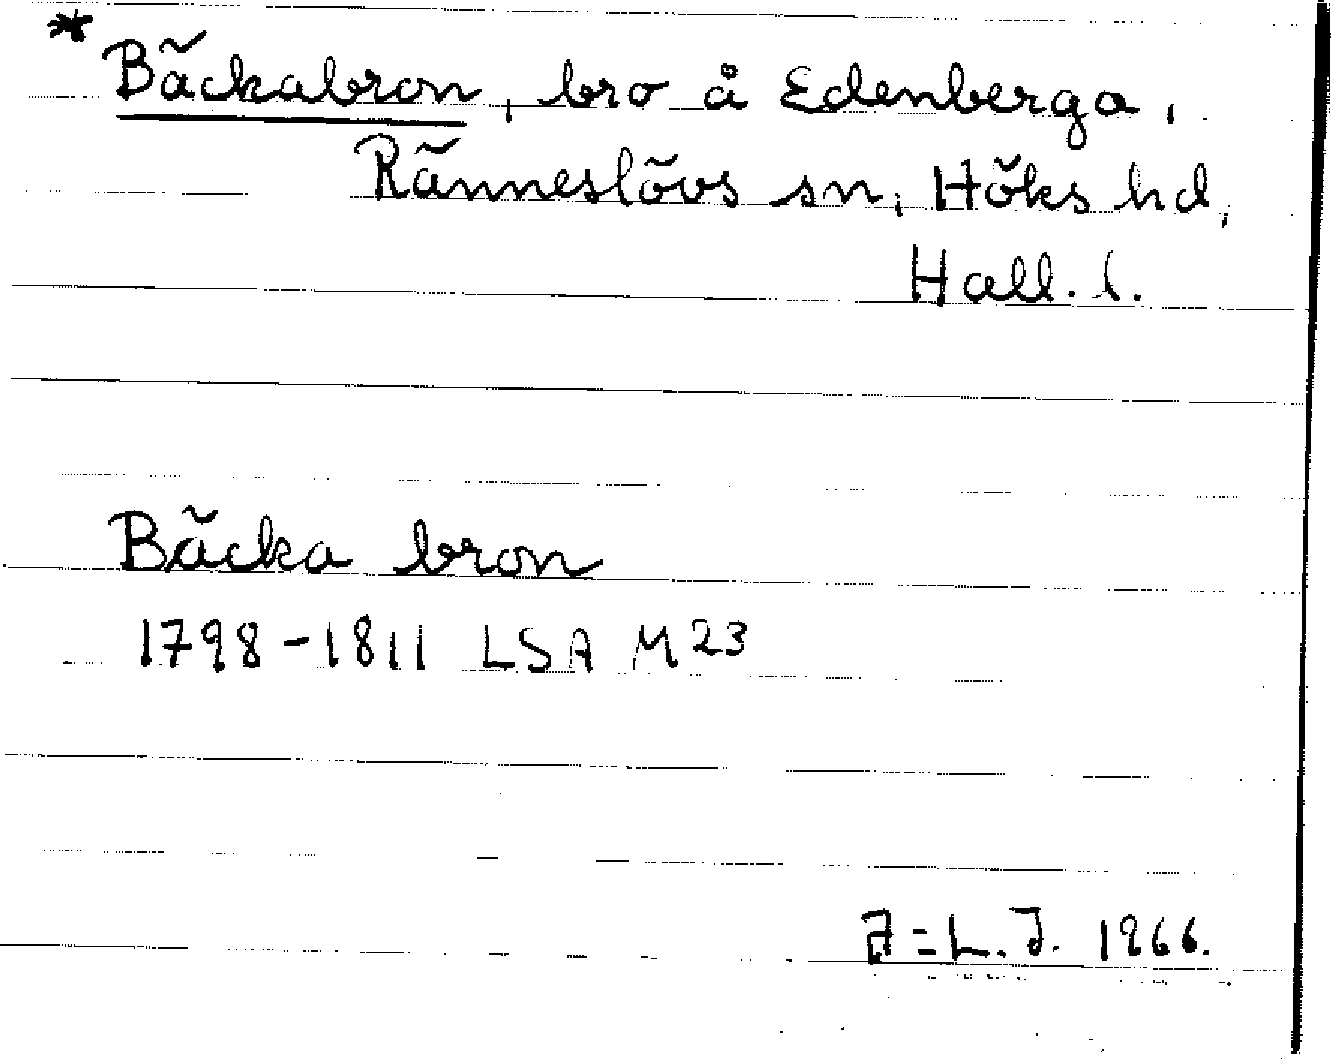 * Bäckabron, bro å Edenberga,
Ränneslövs sn, Höks hd,
Hall. l.
Bäcka bron
1798-1811 LSA M23
A=L.J. 1966.